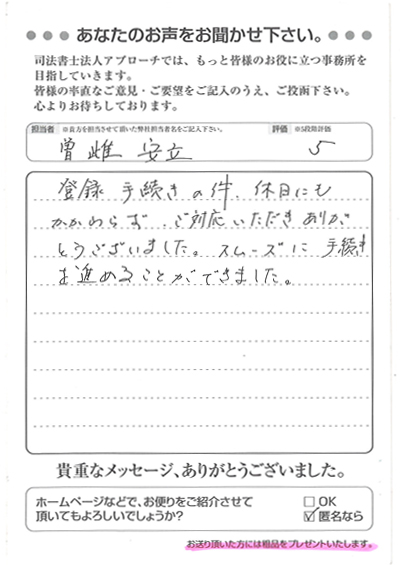 ●●●あなたのお声をお聞かせ下さい。●●●
司法書士法人アプローチでは、もっと皆様のお役に立つ事務所を
目指していきます。
皆様の率直なご意見・ご要望をご記入のうえ、ご投函下さい。
心よりお待ちしております。
担当者 ※貴方を担当させて頂いた弊社担当者名をご記入下さい。 評価 ※5段階評価
曽雌 安立 5
登録手続きの件、休日にも
かかわらず、ご対応いただきありが
とうございました。スムーズに手続き
を進めることができました。
貴重なメッセージ、ありがとうございました。
ホームページなどで、お便りをご紹介させて
頂いてもよろしいでしょうか?
□ OK
☑ 匿名なら
お送り頂いた方には粗品をプレゼントいたします。